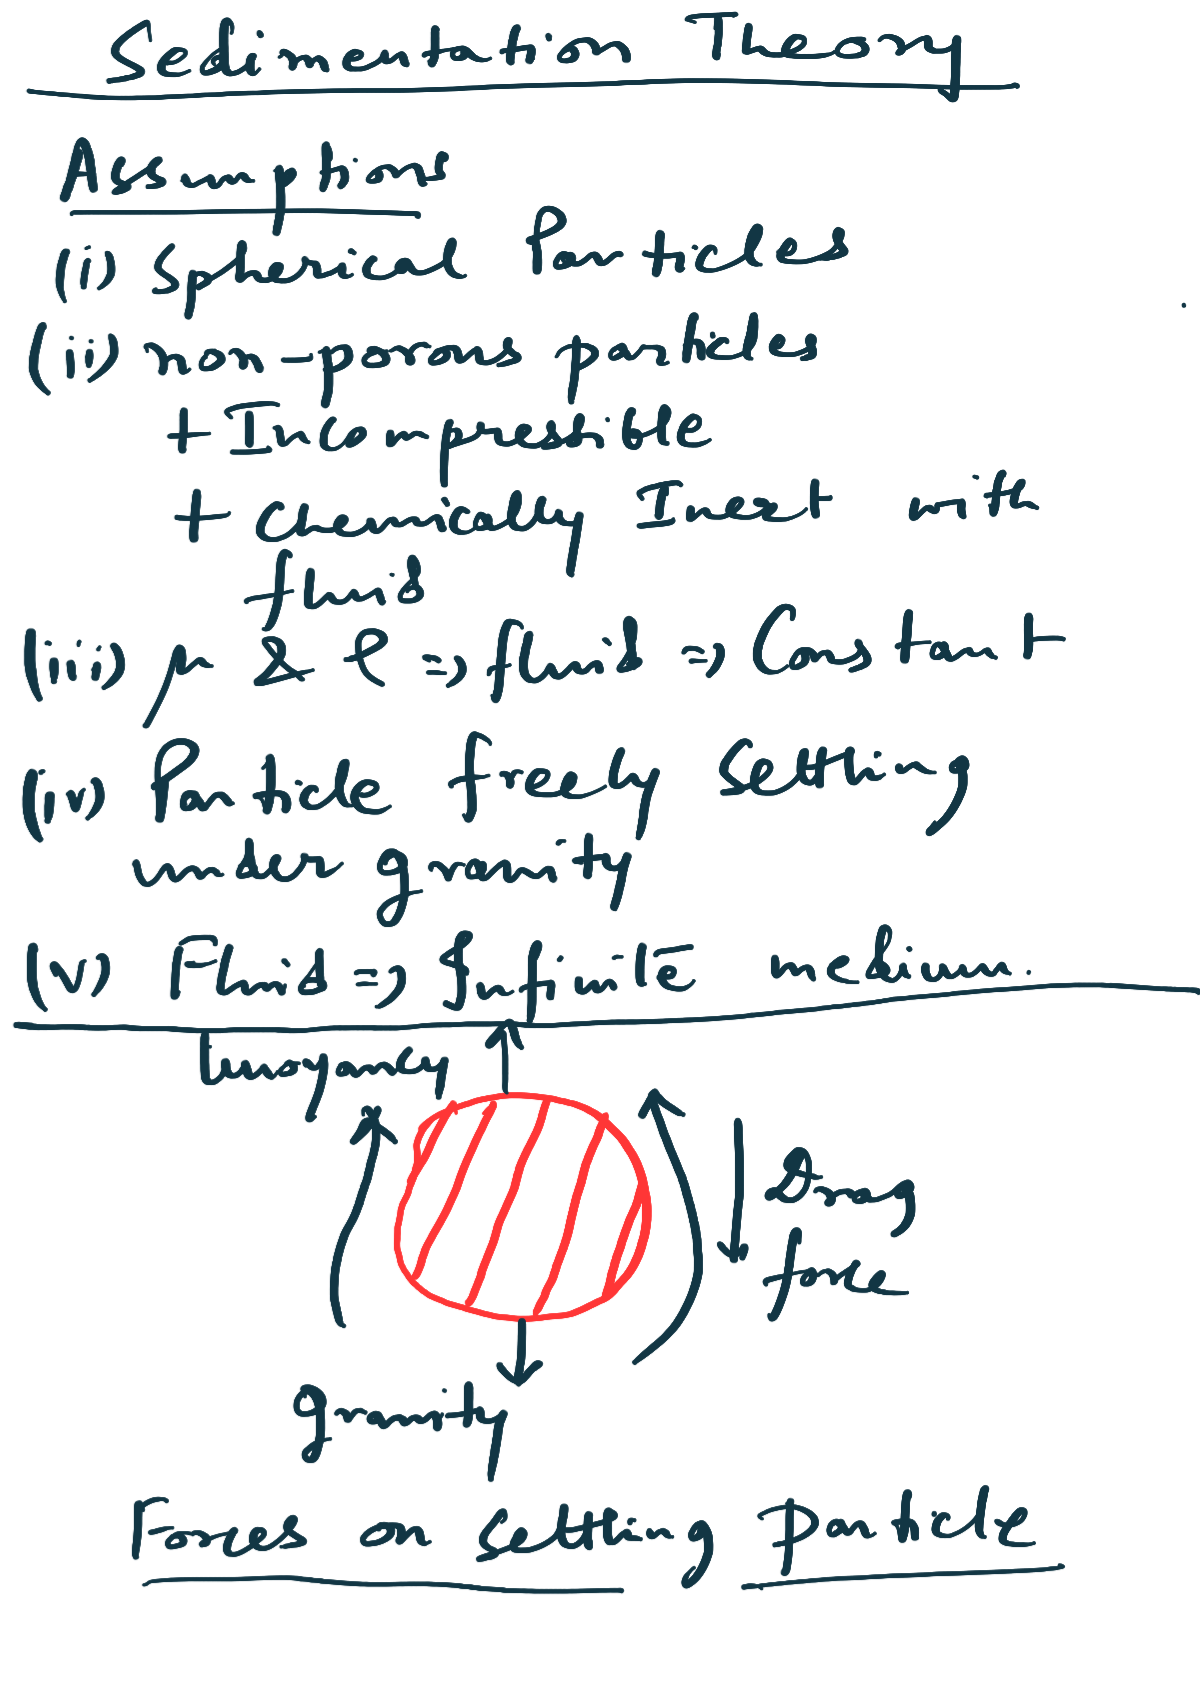 Sedimentation Theory
Assumptions
(i) Spherical Particles
(ii) non-porous particles
+ Incompressible
+ Chemically Inert with
fluid
(iii) μ & ρ => fluid => Constant
(iv) Particle freely settling
under gravity
(v) Fluid => Infinite medium.
buoyancy
Drag
force
gravity
Forces on settling particle